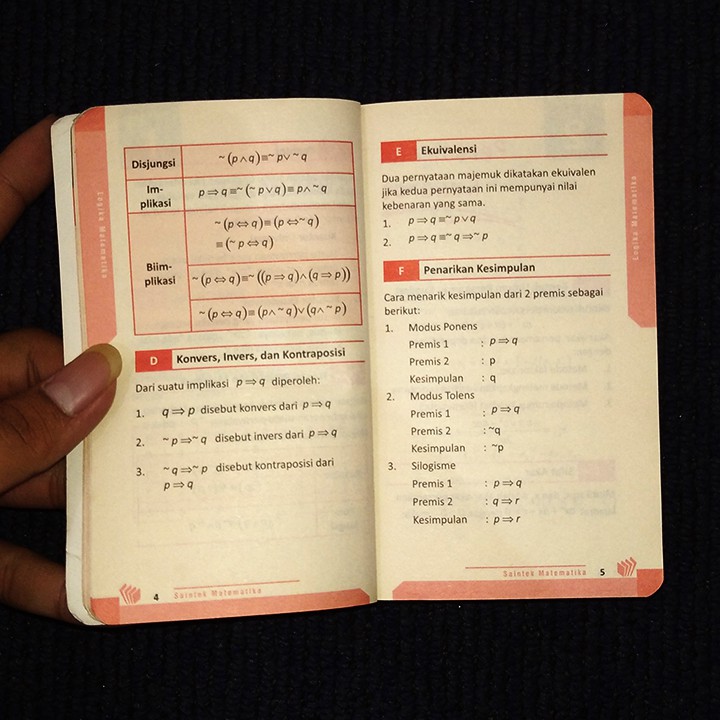 Disjungsi
~(p∧q)≡~p∨~q
Im-
plikasi
p⇒q≡~(~p∨q)≡p∧~q
Biim-
plikasi
~(p⇔q)≡(p⇔~q)
≡(~p⇔q)
~(p⇔q)≡~((p⇒q)∧(q⇒p))
~(p⇔q)≡(p∧~q)∨(q∧~p)
D Konvers, Invers, dan Kontraposisi
Dari suatu implikasi p⇒q diperoleh:
1. q⇒p disebut konvers dari p⇒q
2. ~p⇒~q disebut invers dari p⇒q
3. ~q⇒~p disebut kontraposisi dari
p⇒q
4 Saintek Matematika
Logika Matematika
E Ekuivalensi
Dua pernyataan majemuk dikatakan ekuivalen
jika kedua pernyataan ini mempunyai nilai
kebenaran yang sama.
1. p⇒q≡~p∨q
2. p⇒q≡~q⇒~p
F Penarikan Kesimpulan
Cara menarik kesimpulan dari 2 premis sebagai
berikut:
1. Modus Ponens
Premis 1 : p⇒q
Premis 2 : p
Kesimpulan : q
2. Modus Tolens
Premis 1 : p⇒q
Premis 2 : ~q
Kesimpulan : ~p
3. Silogisme
Premis 1 : p⇒q
Premis 2 : q⇒r
Kesimpulan : p⇒r
Saintek Matematika 5
Logika Matematika